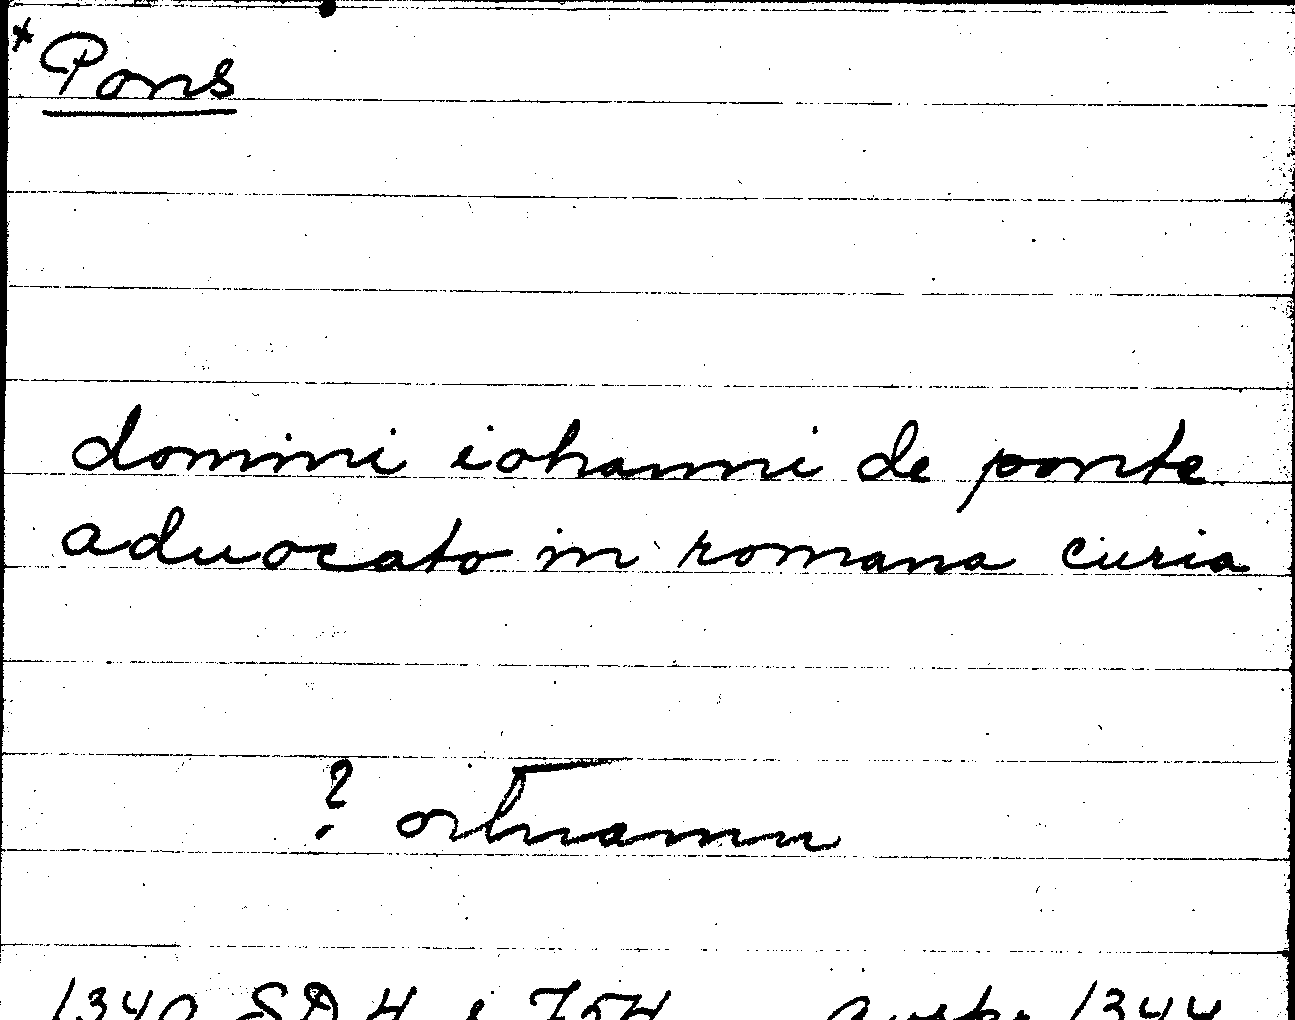 * Pons
domini iohanni de ponte
aduocato in romana curia
? ortnamn
1340 SD 4 s 754 avskr 1344